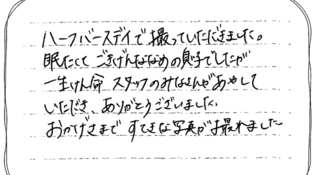 ハーフバースデイで撮っていただきました。
眠たくて ごきげんななめの息子でしたが
一生けん命 スタッフのみなさんがあやして
いただき、ありがとうございました。
おかげさまで すてきな写真が撮れました